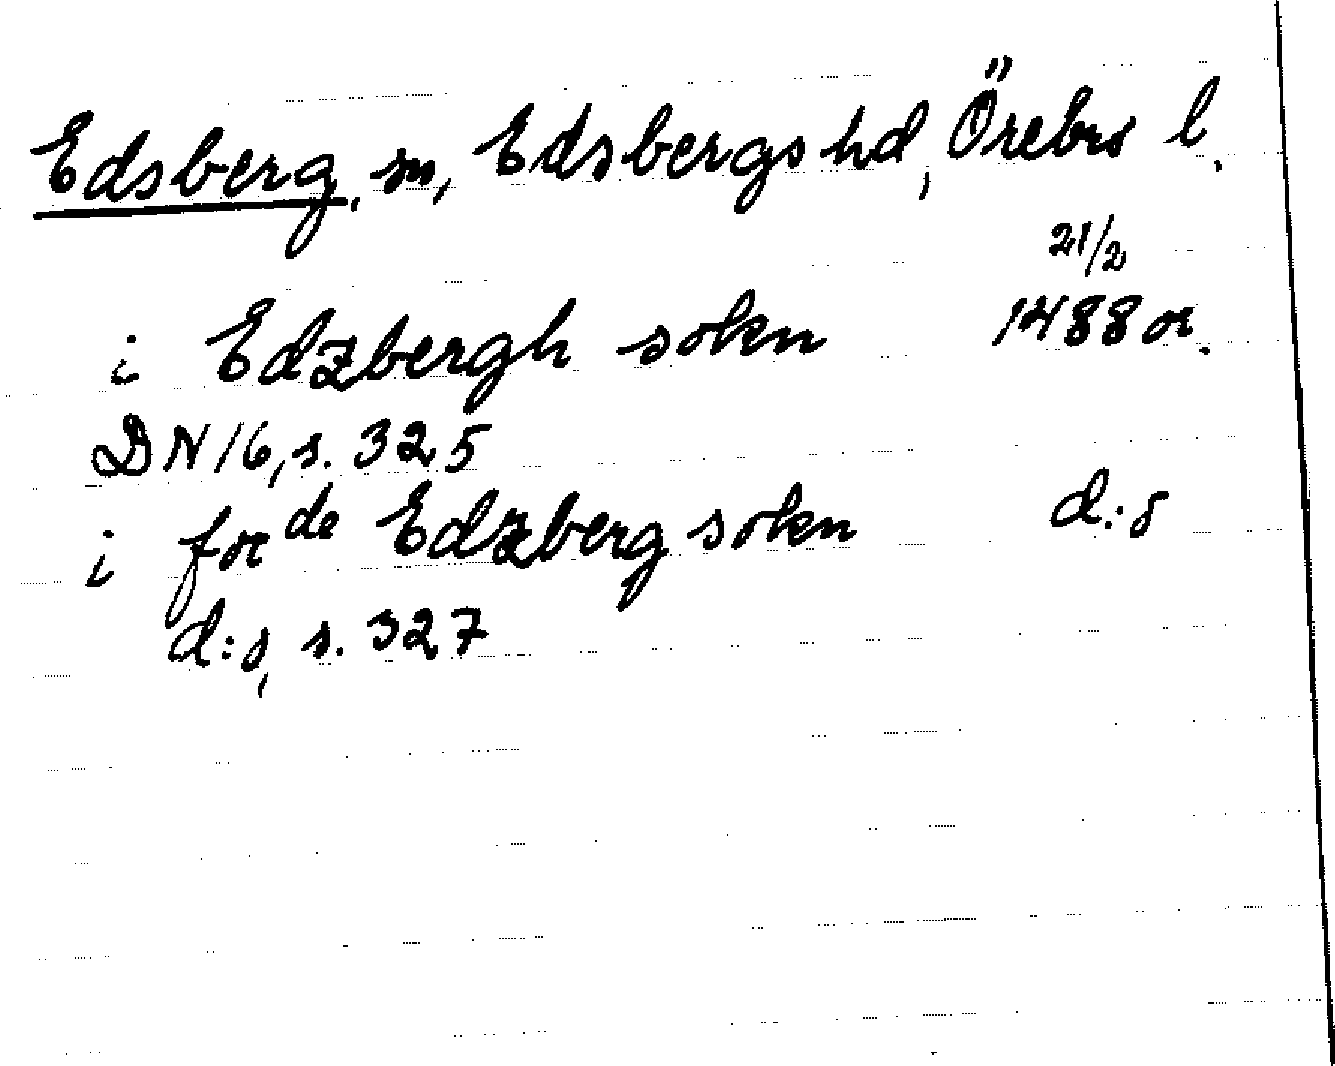 Edsberg, sn, Edsbergs hd, Örebro l.
21/2
i Edzbergh sokn 1488 or.
DN 16, s. 325
i for de Edzberg sokn d:o
d:o, s. 327